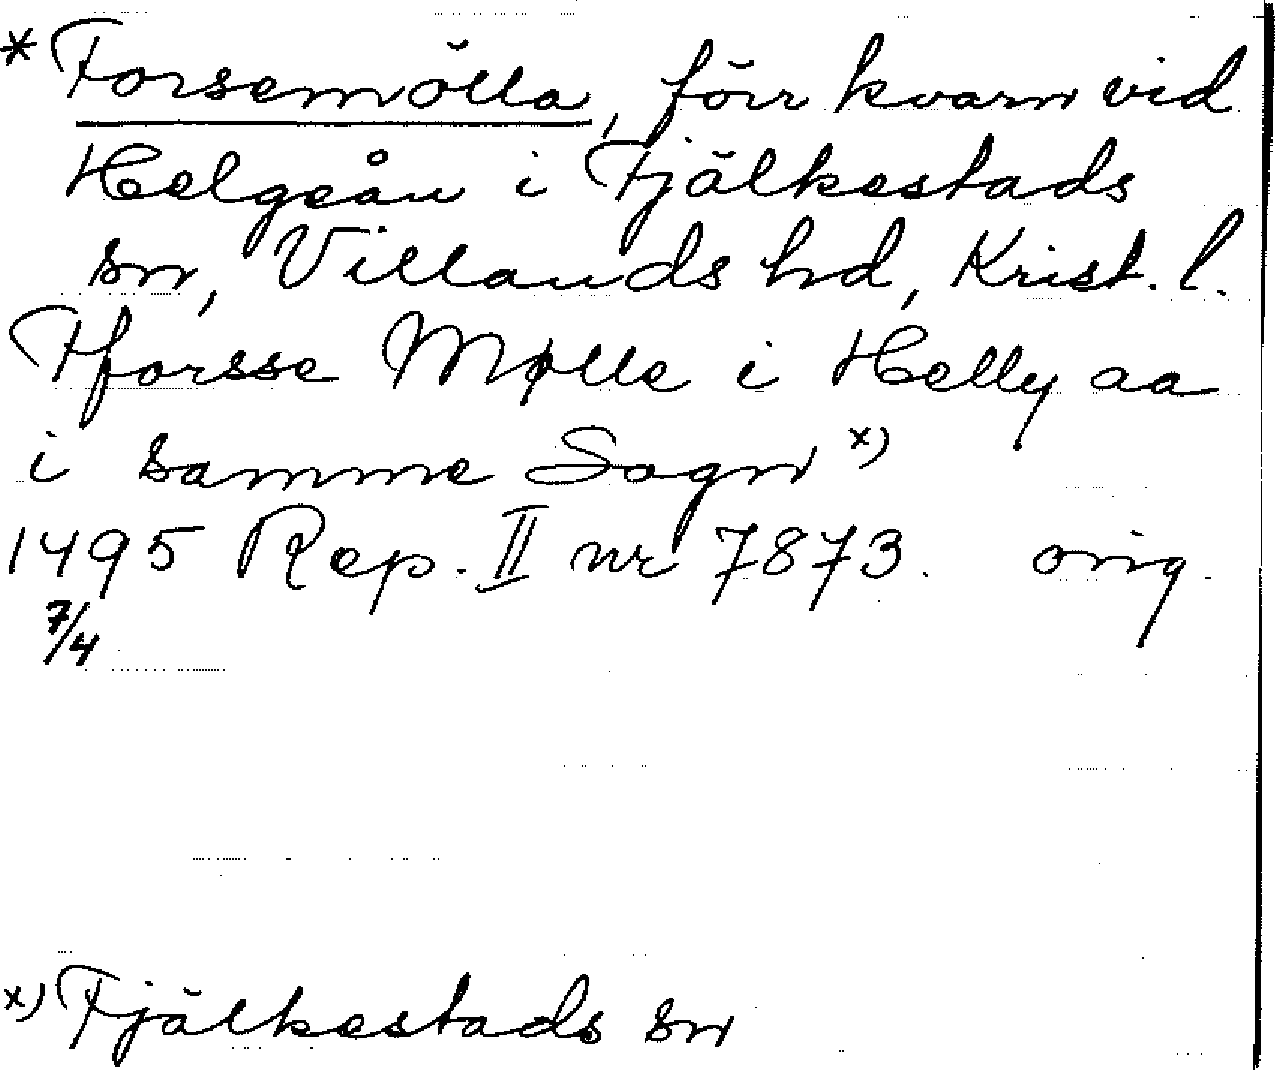 * Forsemölla, förr kvarn vid
Helgeån i Fjälkestads
sn, Villands hd, Krist. l.
Fforsse Mølle i Helly aa
i samme Sogn x)
1495 Rep. II nr 7873. orig
7/4
x) Fjälkestads sn